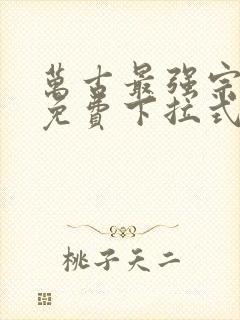 萬古最强宗
免費下拉式
桃子天二